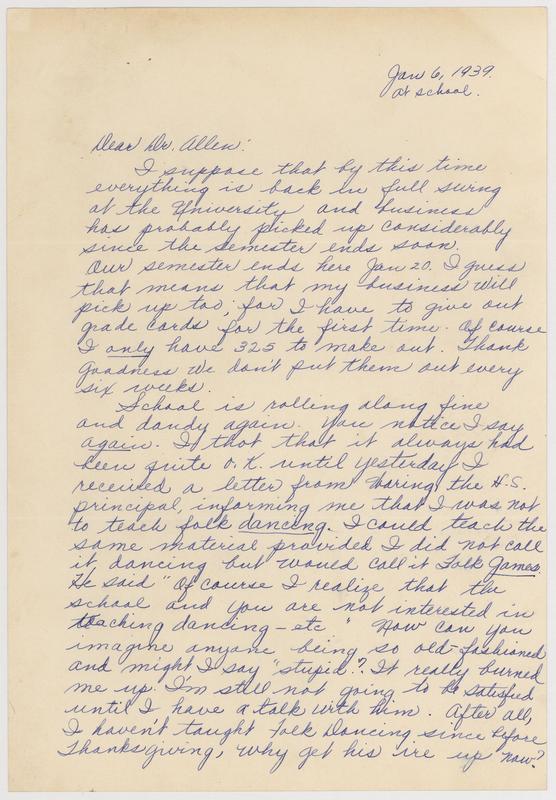 Jan 6, 1939.
At school.
Dear Dr. Allen:
I suppose that by this time
everything is back in full swing
at the University and business
has probably picked up considerably
since the semester ends soon.
Our semester ends here Jan 20. I guess
that means that my business will
pick up too, for I have to give out
grade cards for the first time. Of course
I only have 325 to make out. Thank
goodness we don't put them out every
six weeks.
School is rolling along fine
and dandy again. You notice I say
again. I thot that it always had
been quite O.K. until yesterday I
received a letter from Waring the H.S.
principal, informing me that I was not
to teach folk dancing. I could teach the
same material provided I did not call
it dancing but would call it Folk Games.
He said "Of course I realize that the
school and you are not interested in
teaching dancing - etc " Now can you
imagine anyone being so old-fashioned
and might I say "stupid"? It really burned
me up. I'm still not going to be satisfied
until I have a talk with him. After all,
I haven't taught Folk Dancing since before
Thanksgiving, why get his ire up now?